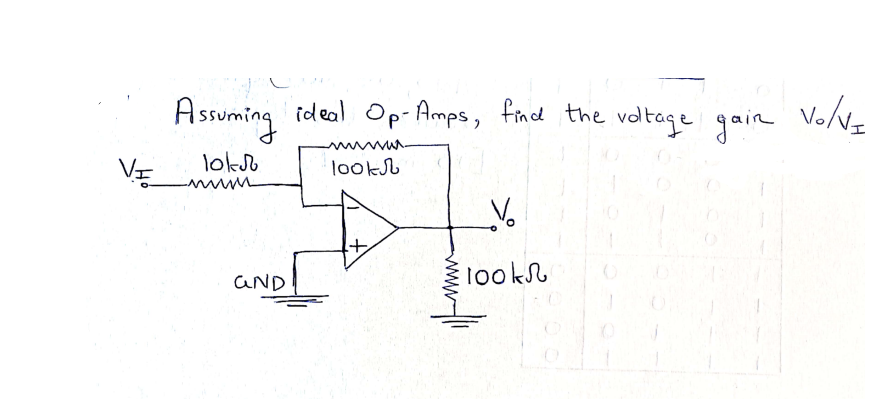 Assuming ideal Op-Amps, find the voltage gain Vo/VI
VI 10kΩ 100kΩ
−
Vo
+
GND 100kΩ